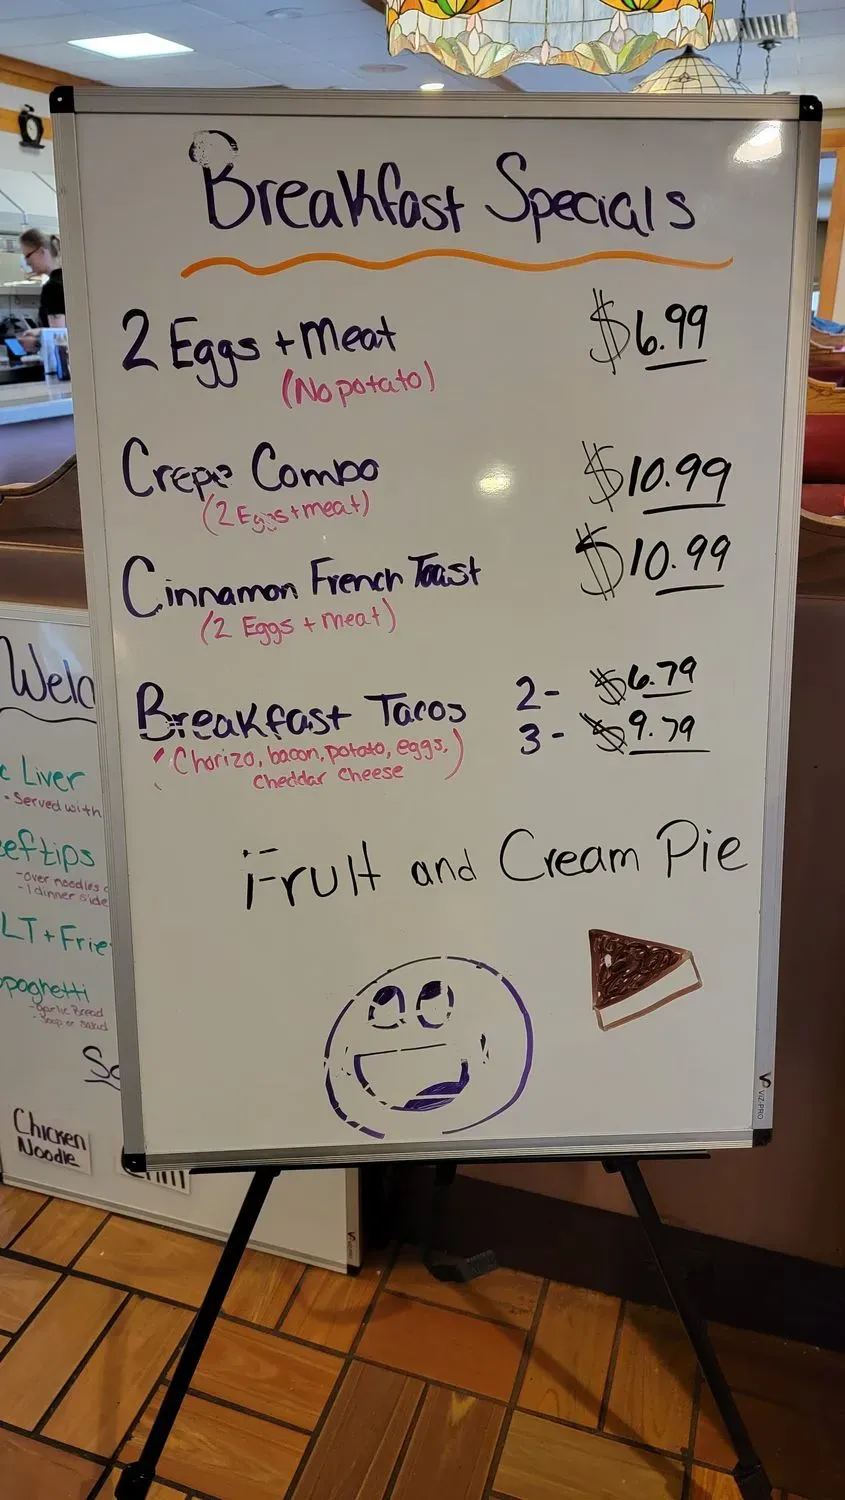 Breakfast Specials
2 Eggs + Meat $6.99
(No potato)
Crepe Combo $10.99
(2 Eggs + meat)
Cinnamon French Toast $10.99
(2 Eggs + meat)
Breakfast Tacos 2- $6.79
3- $9.79
(Chorizo, bacon, potato, eggs,
cheddar cheese)
Fruit and Cream Pie
VIZ-PRO
Welc
c Liver
- Served with
eftips
- over noodles
- 1 dinner side
LT + Frie
paghetti
- Garlic Bread
- Soup or Salad
So
Chicken
Noodle